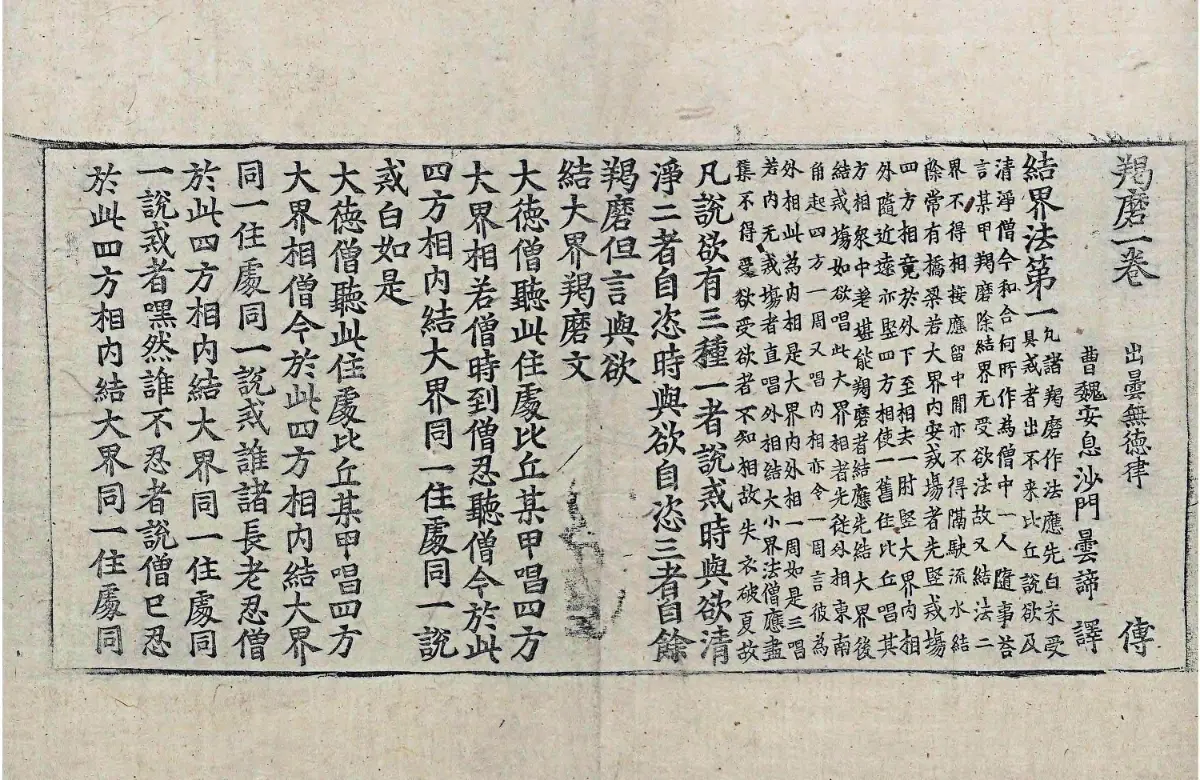 羯磨一卷 出曇無徳律 傳
曹魏安息沙門曇諦 譯
結界法第一
凡諸羯磨作法應先白未受
具戒者出不来比丘說欲及
清淨僧今和合何所作為僧中一人隨事荅
言某甲羯磨除結界无受欲法故又結法二
界不得相接應留中間亦不得隔駛流水結
除常有橋梁若大界内安戒塲者先竪戒塲
四方相竟於外下至相去一肘竪大界内相
外隨近遠亦竪四方相使一舊住比丘唱其
方相衆中著堪能羯磨者結應先結大界後
結戒塲如欲唱此大界相者先従外相東南
角起四方一周又唱内相亦令一周言彼為
外相此為内相是大界内外相一周如是三唱
若内无戒塲者直唱外相結大小界法僧應盡
集不得受欲受欲者不知相故失衣破夏故
凡說欲有三種一者說戒時與欲清
淨二者自恣時與欲自恣三者自餘
羯磨但言與欲
結大界羯磨文
大徳僧聽此住處比丘某甲唱四方
大界相若僧時到僧忍聽僧今於此
四方相内結大界同一住處同一說
戒白如是
大徳僧聽此住處比丘某甲唱四方
大界相僧今於此四方相内結大界
同一住處同一說戒誰諸長老忍僧
於此四方相内結大界同一住處同
一說戒者嘿然誰不忍者說僧已忍
於此四方相内結大界同一住處同